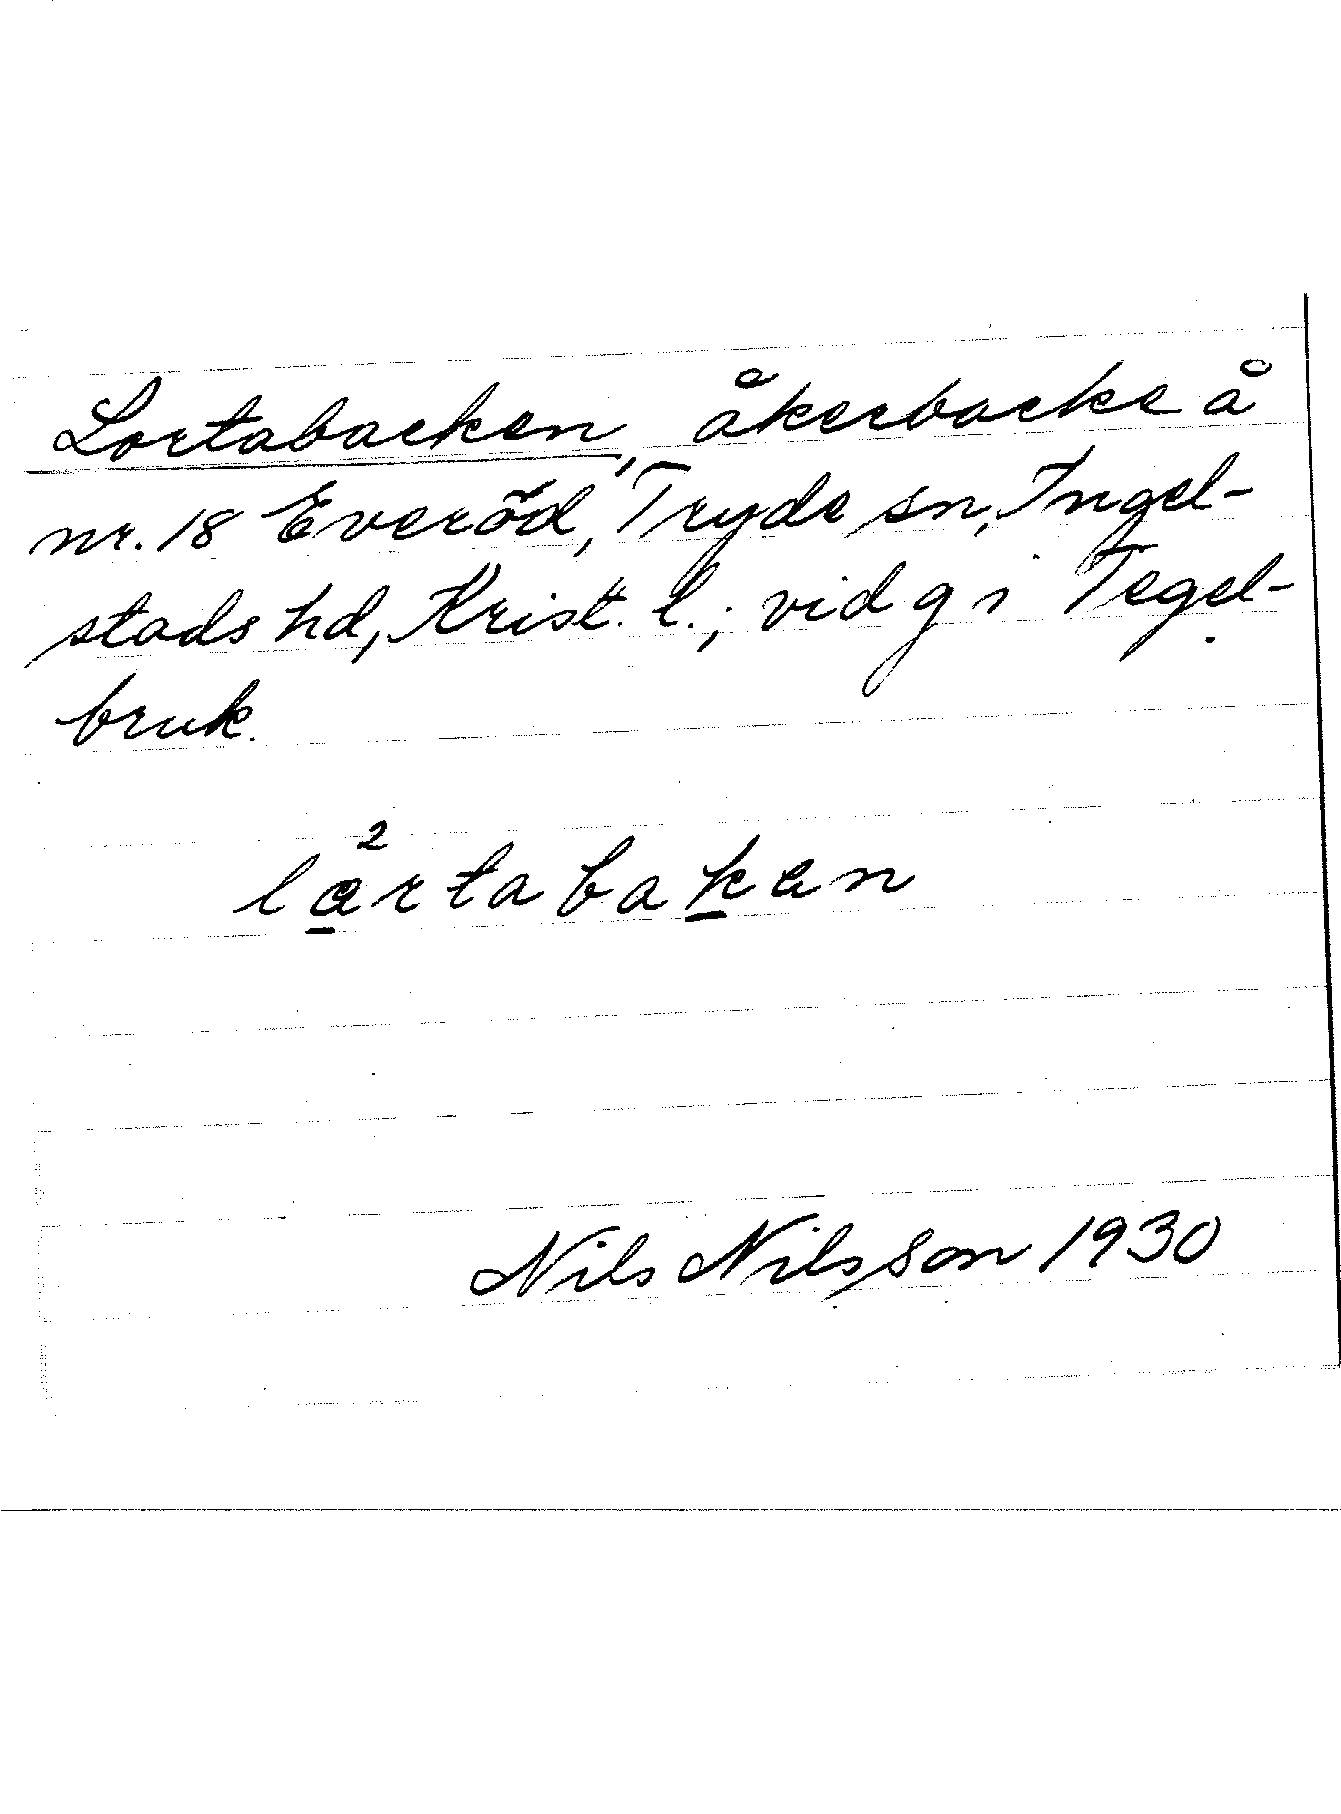 Lortabacken, åkerbacke å
nr. 18 Everöd, Tryde sn, Ingel-
stads hd, Krist. l.; vid g i Tegel-
bruk.
2
lartabaken
Nils Nilsson 1930